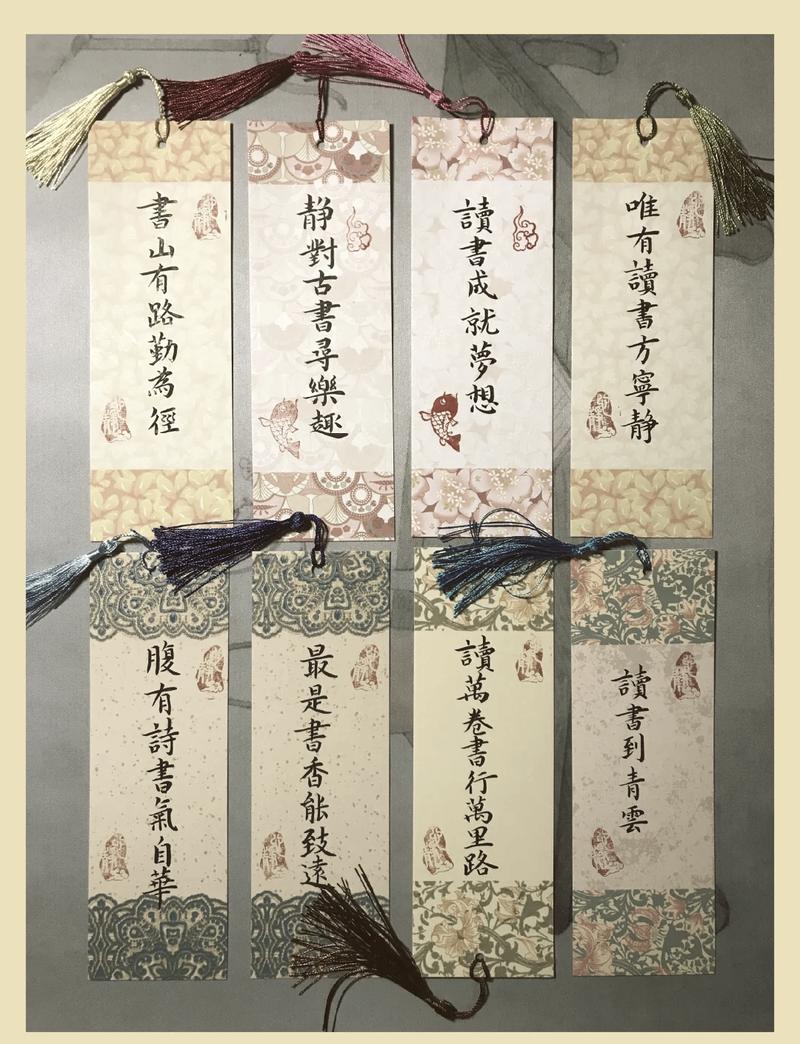 書山有路勤為徑
静對古書尋樂趣
讀書成就夢想
唯有讀書方寧静
腹有詩書氣自華
最是書香能致遠
讀萬卷書行萬里路
讀書到青雲